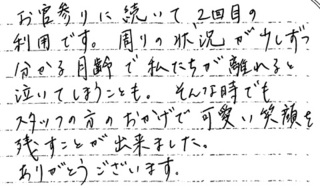 お宮参りに続いて2回目の
利用です。周りの状況が少しずつ
分かる月齢で私たちが離れると
泣いてしまうことも。そんな時でも
スタッフの方のおかげで可愛い笑顔を
残すことが出来ました。
ありがとうございます。